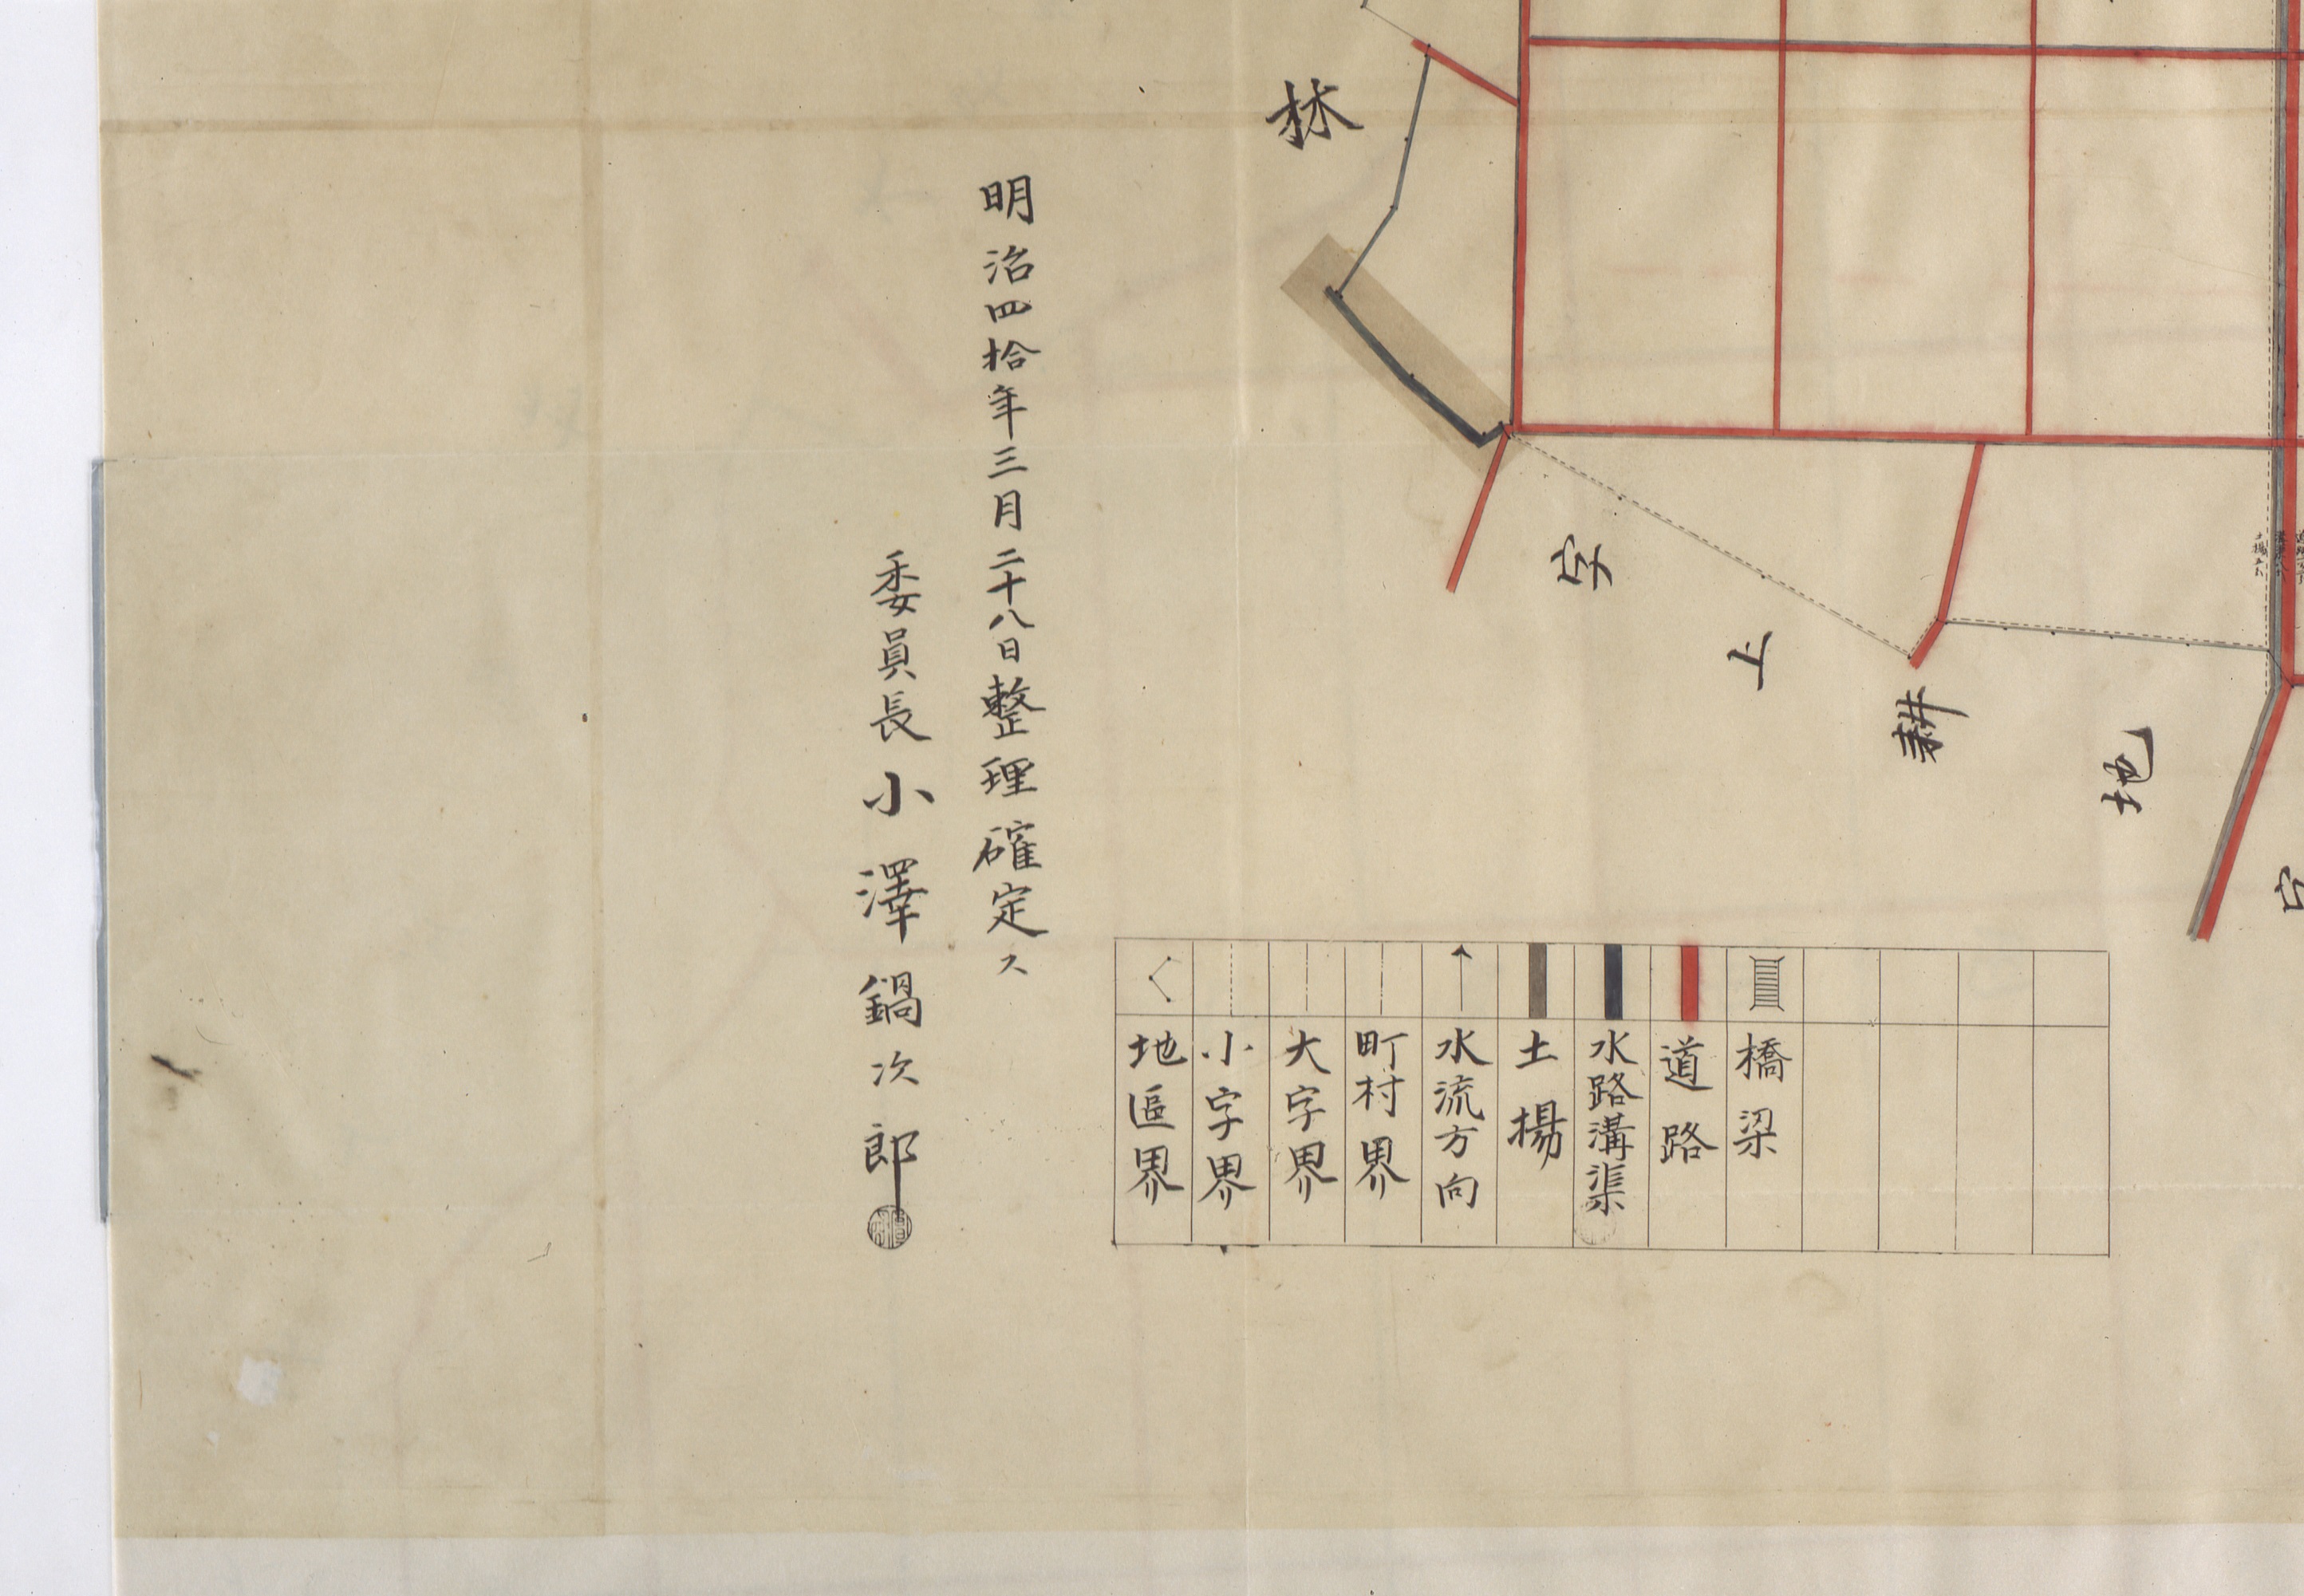 林
字上耕地
字
橋梁
道路
水路溝渠
土揚
水流方向
町村界
大字界
小字界
地區界
明治四拾年三月二十八日整理確定ス
委員長小澤鍋次郎